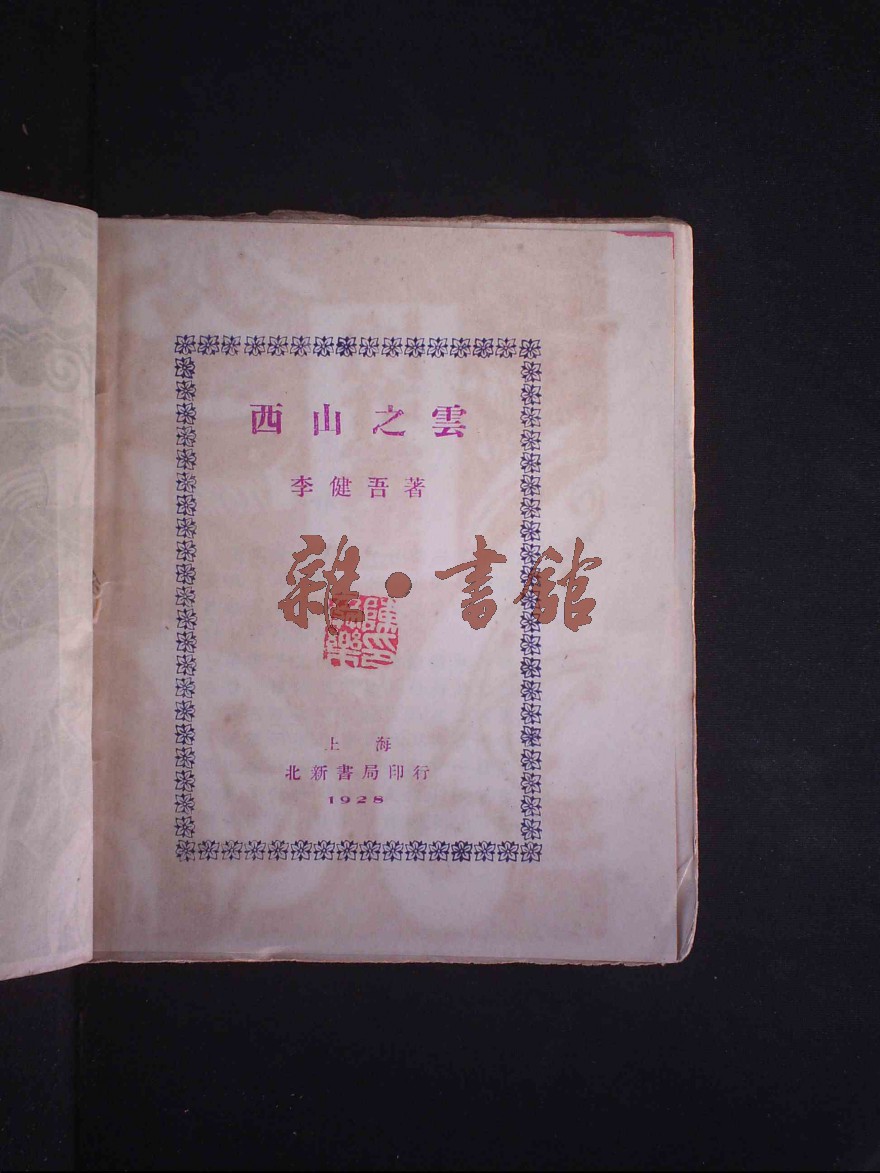 西山之雲
李健吾著
雜·書館
上海
北新書局印行
1928